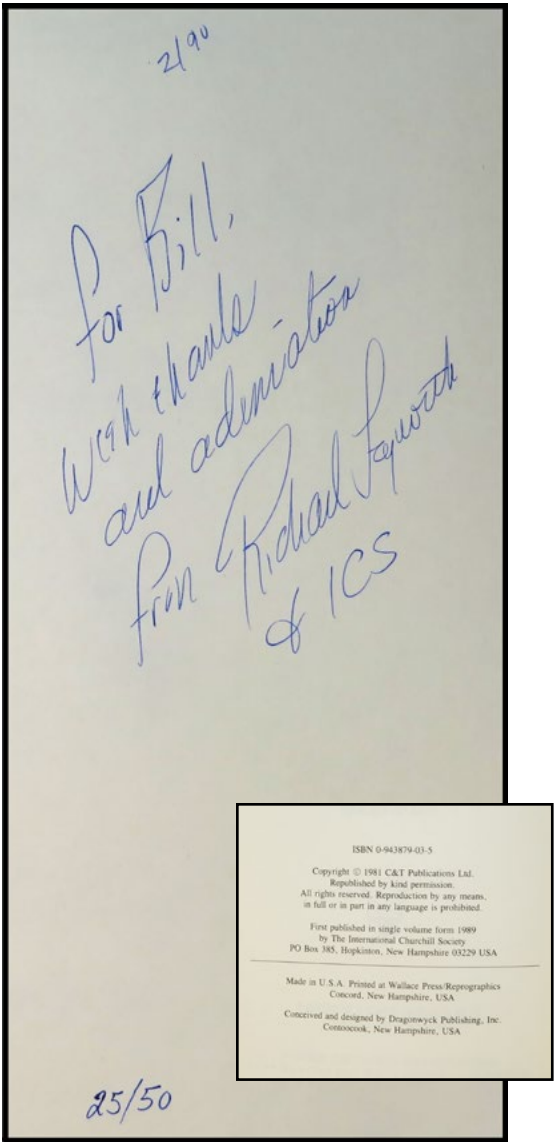 2/90
for Bill,
with thanks
and admiration
from Richard
& ICS
25/50
ISBN 0-943879-03-5
Copyright © 1981 C&T Publications Ltd.
Republished by kind permission.
All rights reserved. Reproduction by any means,
in full or in part in any language is prohibited.
First published in single volume form 1989
by The International Churchill Society
PO Box 385, Hopkinton, New Hampshire 03229 USA
Made in U.S.A. Printed at Wallace Press/Reprographics
Concord, New Hampshire, USA
Conceived and designed by Dragonwyck Publishing, Inc.
Contoocook, New Hampshire, USA